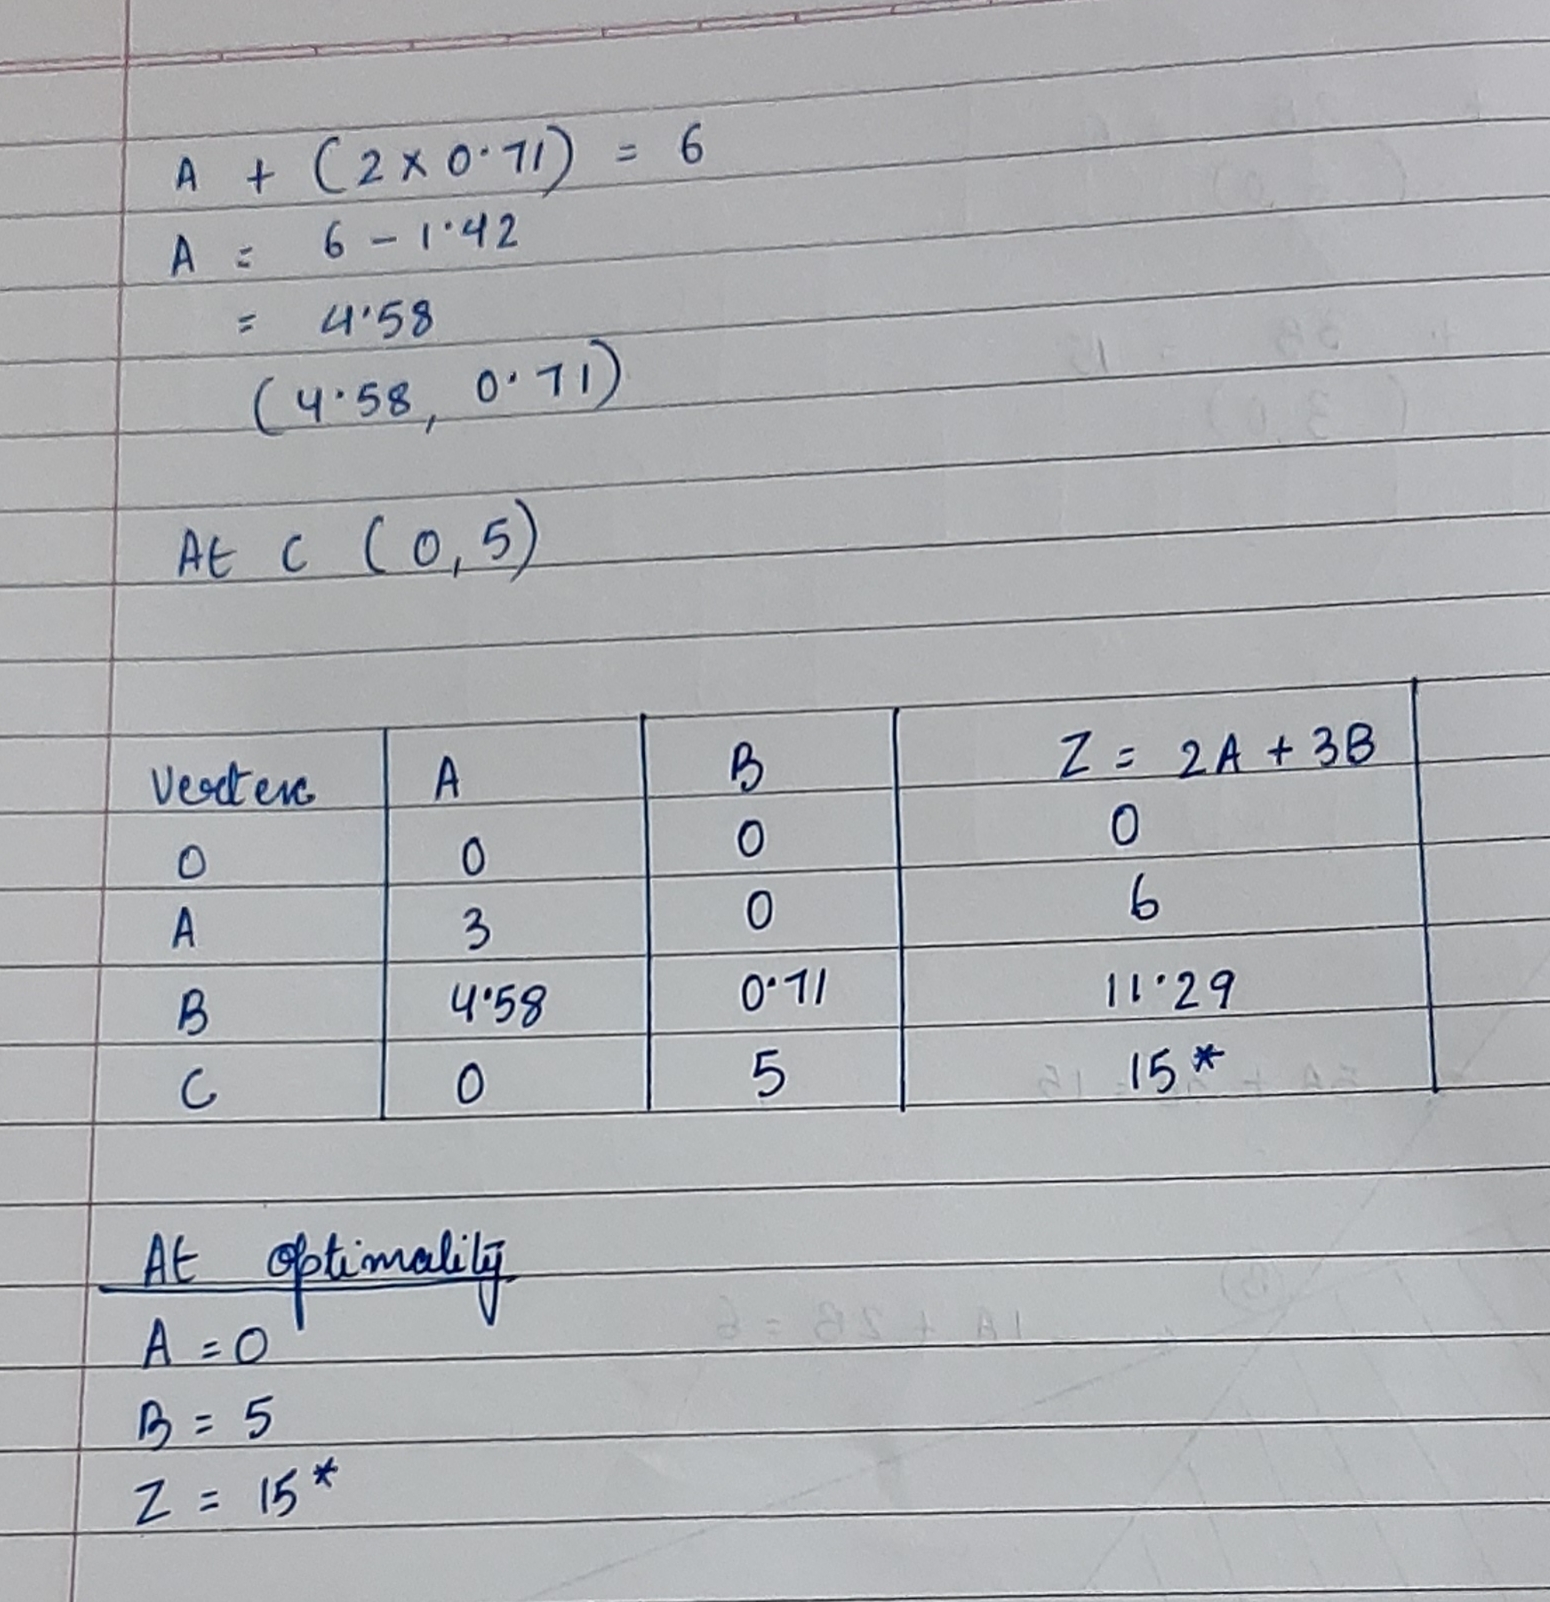 A + (2 × 0.71) = 6
A = 6 - 1.42
= 4.58
(4.58, 0.71)
At C (0, 5)
Vertex A B Z = 2A + 3B
O 0 0 0
A 3 0 6
B 4.58 0.71 11.29
C 0 5 15*
At optimality
A = 0
B = 5
Z = 15*